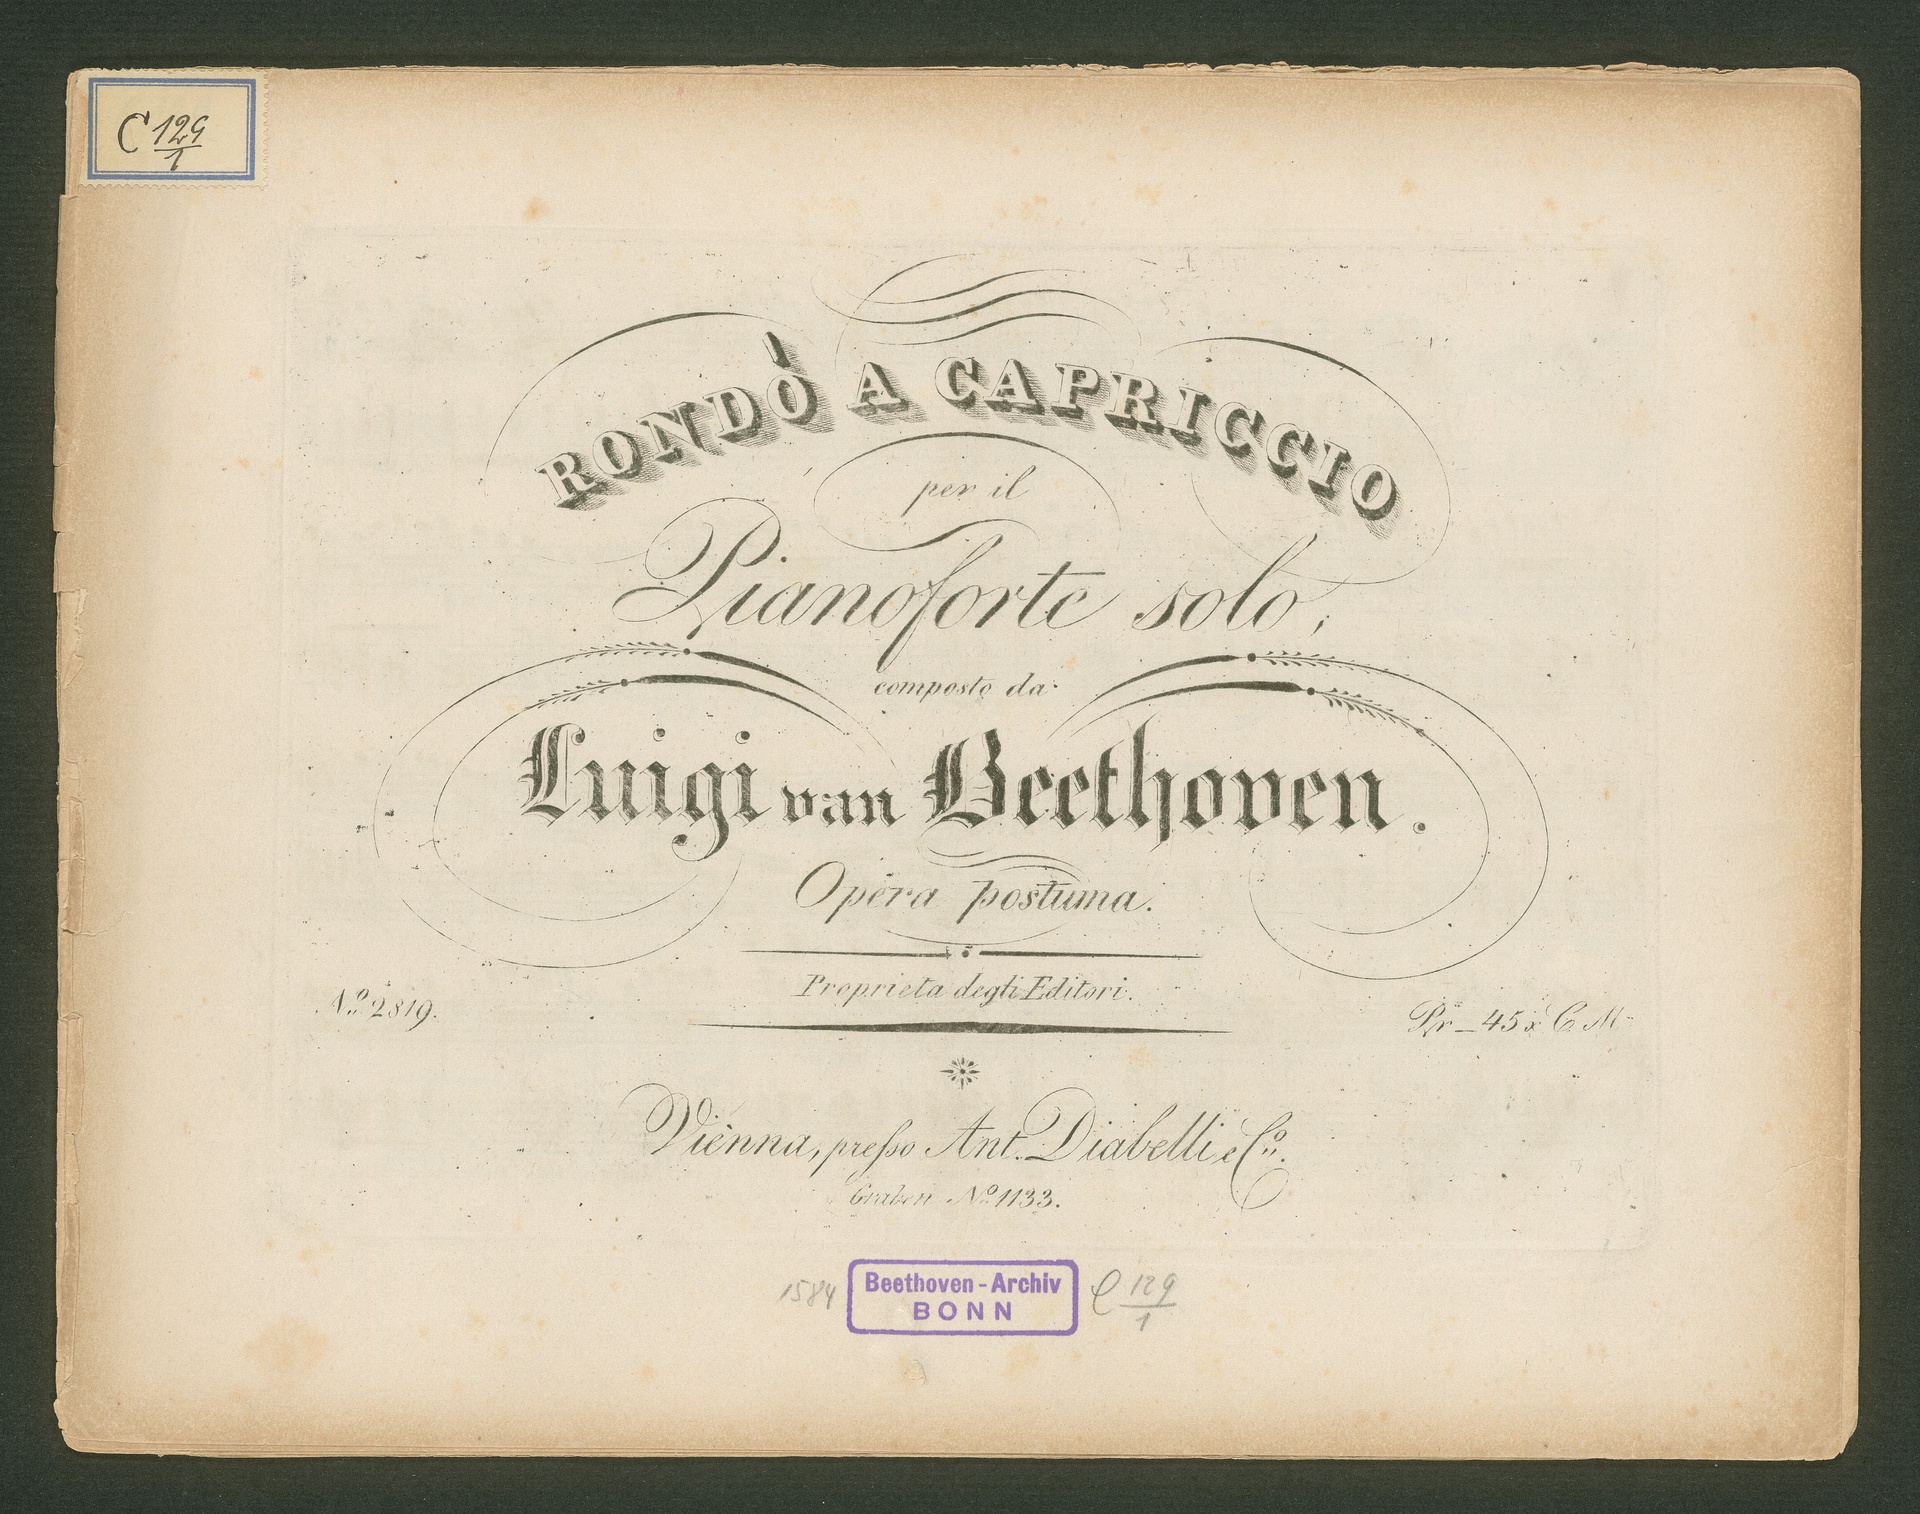 C 129/1
RONDÒ A CAPRICCIO
per il
Pianoforte solo,
composto da
Luigi van Beethoven.
Opera postuma.
Proprieta degli Editori.
No. 2819.
Pr_45 x C. M.
Vienna, presso Ant. Diabelli e Co.
Graben No. 1133.
1584
Beethoven-Archiv
BONN
C 129/1